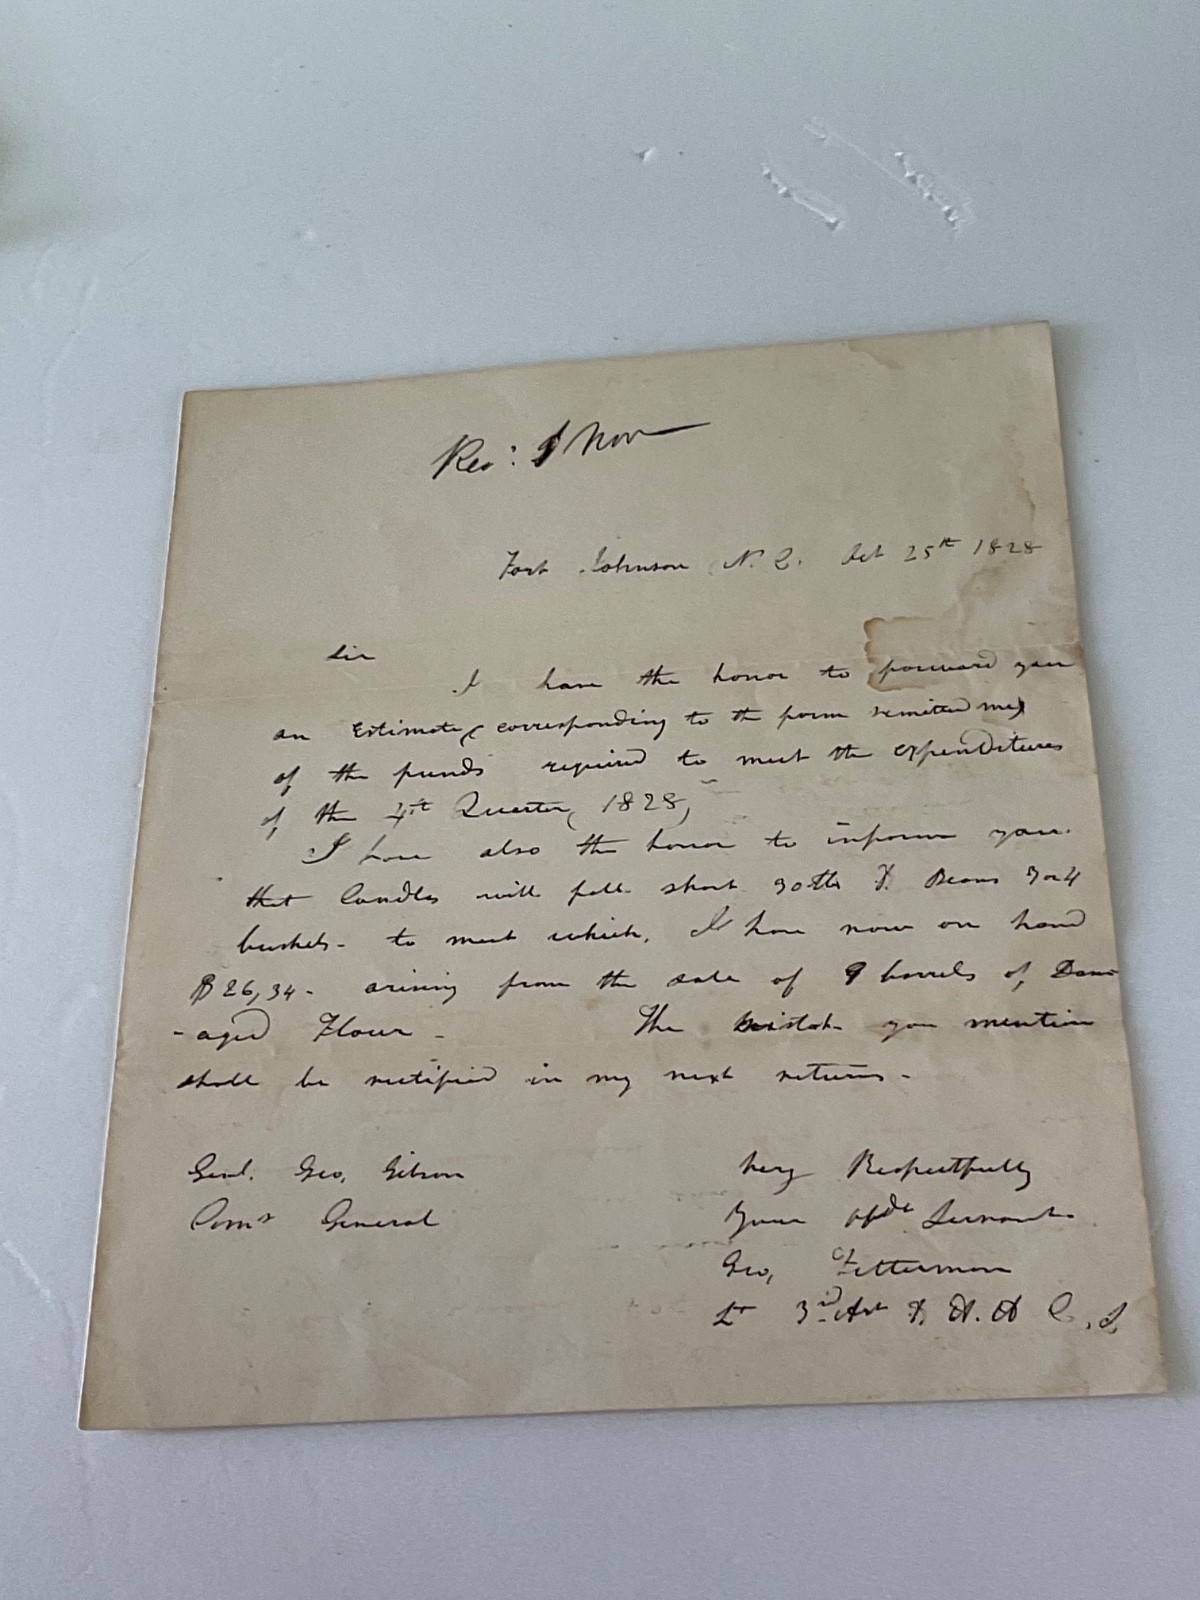 Rec: 1 Nov
Fort Johnson N. C. Oct 25th 1828
Sir
I have the honor to forward you
an Estimate (corresponding to the form remitted me)
of the funds required to meet the expenditures
of the 4th Quarter, 1828,
I have also the honor to inform you.
that Candles will fall short 30 lbs & Beans 3 or 4
bushels - to meet which, I have now on hand
$26,34 - arising from the sale of 9 barrels of Dam
-aged Flour - The mistake you mention
shall be rectified in my next returns -
Genl. Geo, Gibson
Comy General
Very Respectfully
Your Obdt Servant
Geo, Fetterman
Lt 3rd Art & A. A C. S